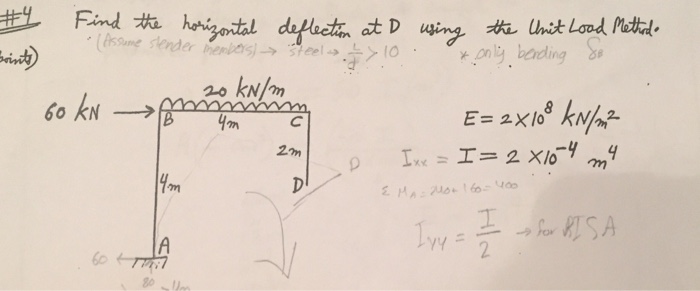 #4 Find the horizontal deflection at D using the Unit Load Method.
points) (Assume slender members) → steel → L/ > 10 * only bending
20 kN/m
60 kN → B 4m C
E = 2×10⁸ kN/m²
2m
Ixx = I = 2 ×10⁻⁴ m⁴
4m D D
Σ MA = 240 + 160 = 400
Iyy = I/2 → for RISA
A
60
80